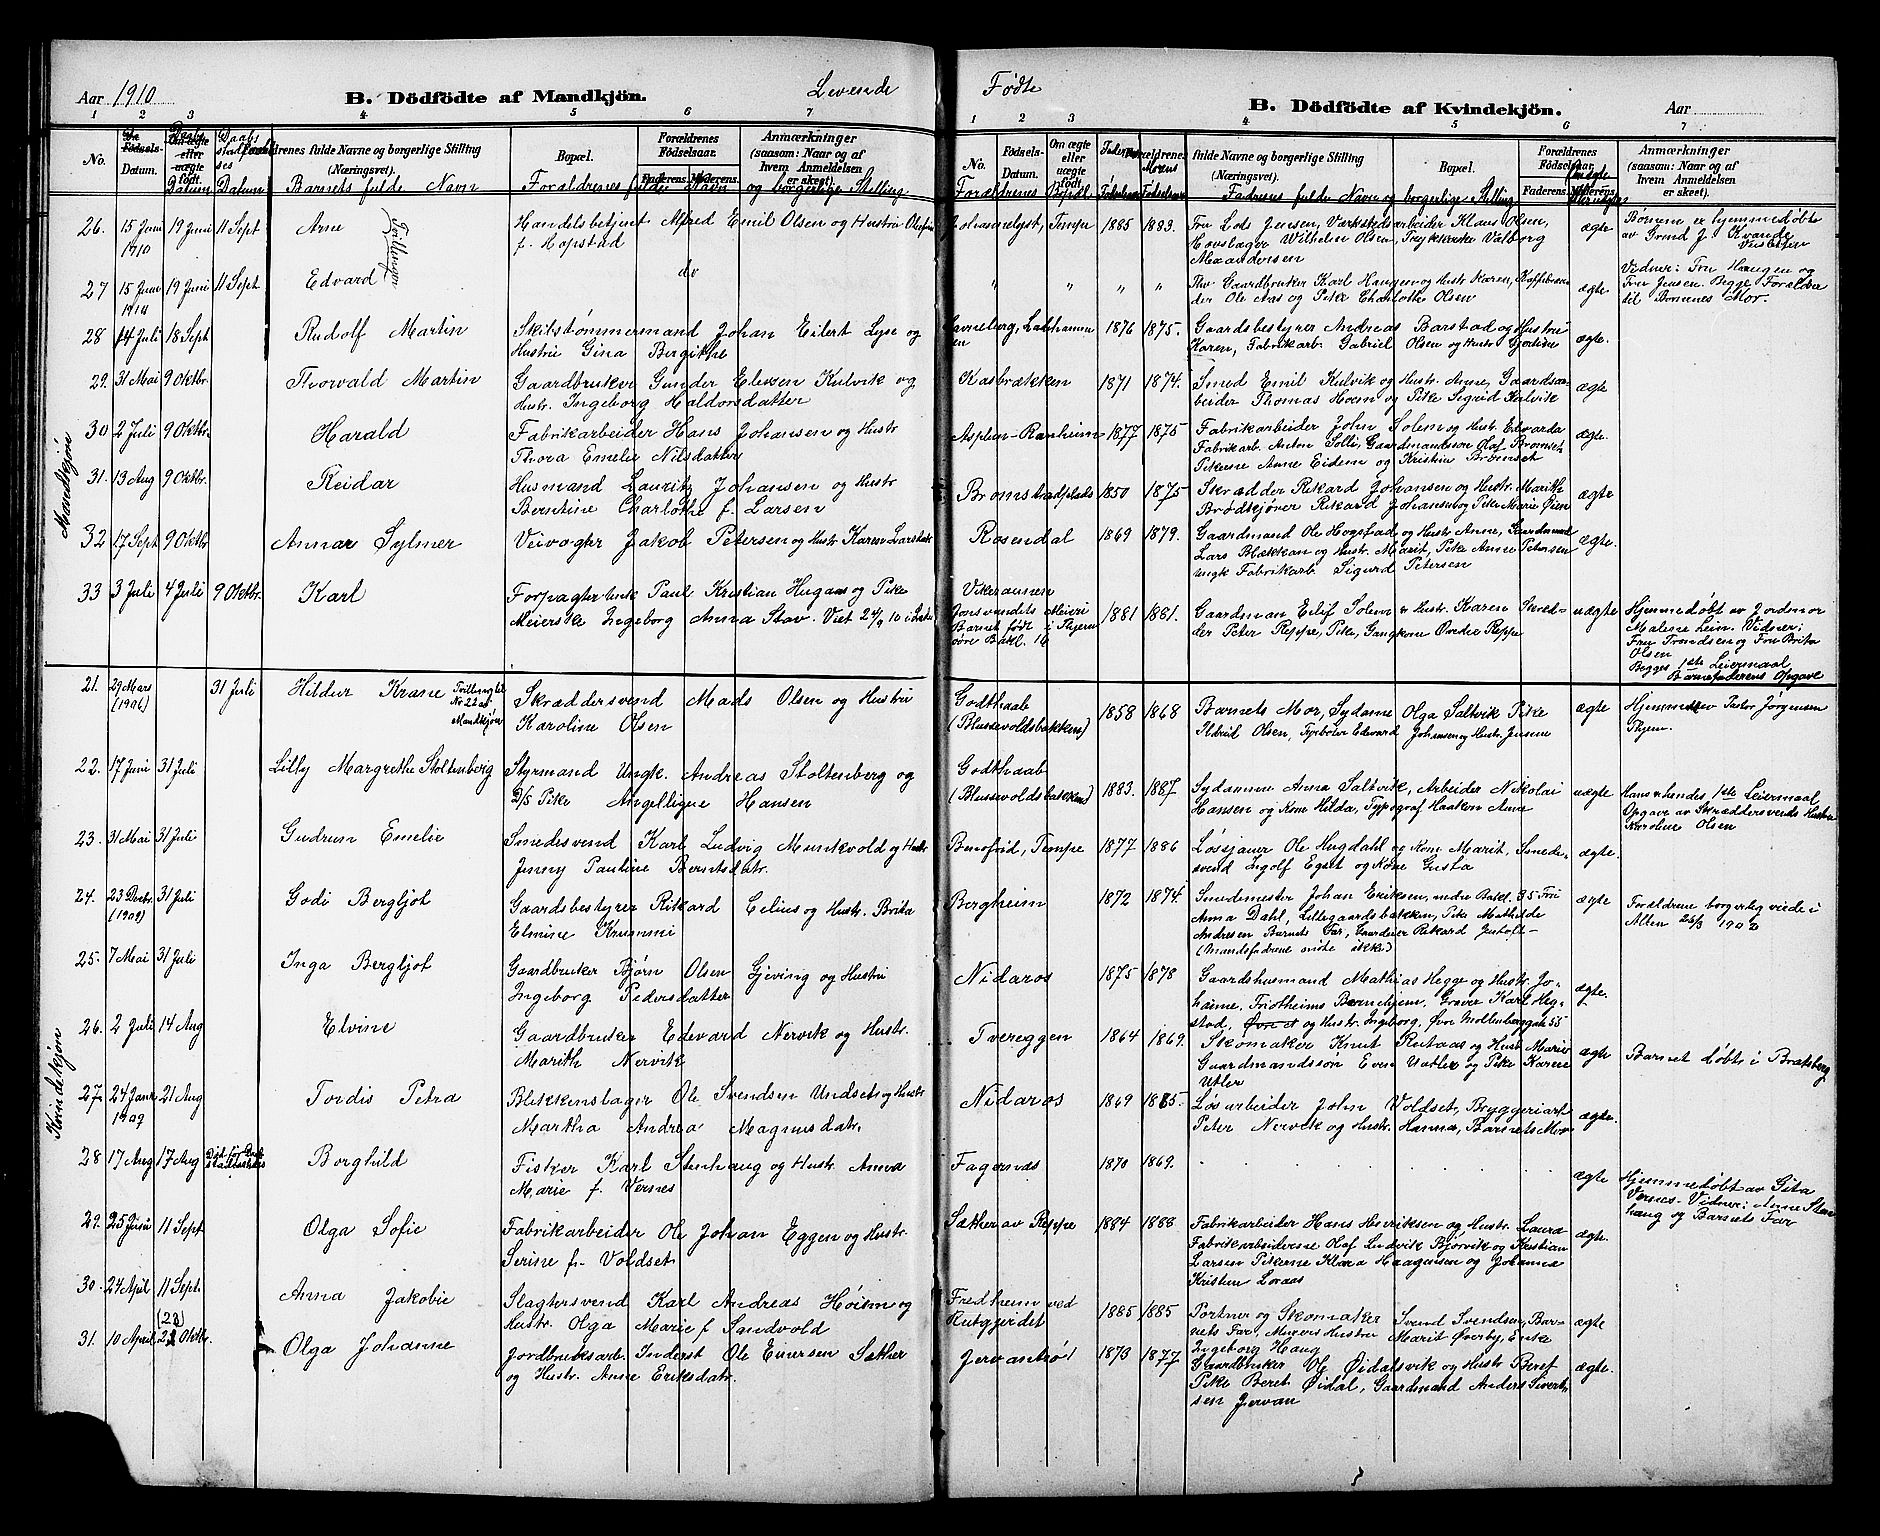 Aar 1910 B. Dödfödte af Mandkjön. Levende
1 2 3 4 5 6 7
No. Fødsels-Datum. Daabs Datum Daabs Datum Forældrenes fulde Navne og borgerlige Stilling (Næringsvei). Bopæl. Forældrenes Fødselsaar. Faderens. Moderens. Anmærkninger (saasom: Naar og af hvem Anmeldelsen er skeet).
Barnets fulde Navn Forældrenes fulde Navn og borgerlige Stilling
Mandkjøn
26. 15 Juni 1910 19 Juni 11 Sept Arne Tvillinger Handelsbetjent Alfred Emil Olsen og Hustru
f. Hopstad
27 15 Juni 1910 19 Juni 11 Sept Edvard do
28 14 Juli 18 Sept Rudolf Martin Skibstømmermand Johan Eilert Lyse og
Hustru Gina Bergithe
29. 31 Mai 9 Oktbr. Thorvald Martin Gaardbruker Gunder Elevsen Kulvik og
Hustr. Ingeborg Haldorsdatter
30 2 Juli 9 Oktbr. Harald Fabrikarbeider Hans Johansen og Hustr
Thora Emelie Nilsdatter
31. 13 Aug 9 Oktbr. Reidar Husmand Lauritz Johansen og Hustr
Berntine Charlothe f. Larsen
32 17 Sept 9 Oktbr Annar Sylmer Veivogter Jakob Petersen og Hustr Karen
33 3 Juli 4 Juli 9 Oktbr. Karl Forpagter Unk Paul Kristian Hugaas og Pike
Meierske Ingeborg Anna Stav. Viet 24/9 10 i
Kvindekjøn
21. 29 Mars (1906) 31 Juli Hildur Krane Tvilling til No 22 af Mandkjøn Skræddersvend Mads Olsen og Hustru
Karoline Olsen
22. 17 Juni 31 Juli Lilly Margrethe Stoltenberg Styrmand Ungk. Andreas Stoltenberg og
D/S Pike Angellique Hansen
23. 31 Mai 31 Juli Gudrun Emelie Smedesvend Karl Ludvig Munkvold og Hustr
Jenny Pauline Berntsdatr.
24. 23 Decbr. (1909) 31 Juli Godi Bergljot Gaardsbestyrer Rikard Celius og Hustr. Brita
Elmine Krummi
25. 7 Mai 31 Juli Inga Bergljot Gaardbruker Bjørn Olsen Gjeving og Hustru
Ingeborg Pedersdatter
26. 2 Juli 14 Aug Elvine Gaardbruker Edevard Nervik og Hustr.
Marith Nervik
27. 24 Janr 1909 21 Aug Tordis Petra Blikkenslager Ole Svendsen Undset og Hustr
Martha Andrea Magnusdatr.
28 17 Aug 17 Aug Borghild Fisker Karl Stenhaug og Hustr. Anna
Marie f. Vernes
29. 25 Juni 11 Sept Olga Sofie Fabrikarbeider Ole Johan Eggen og Hustr.
Serine f. Voldset
30. 24 April 11 Sept. Anna Jakobie Slagtersvend Karl Andreas Høiem og
Hustr. Olga Marie f Sandvold
31. 10 April (23) Oktbr. Olga Johanne Jordbruksarb. Inderst Ole Einersen Sæther
og Hustr. Anne Eriksdatr.
Fødte B. Dödfödte af Kvindekjön. Aar
1 2 3 4 5 6 7
No. Fødsels-Datum. Om ægte eller uægte født. Forældrenes fulde Navne og borgerlige Stilling (Næringsvei). Bopæl. Forældrenes Fødselsaar. Faderens. Moderens. Anmærkninger (saasom: Naar og af hvem Anmeldelsen er skeet).
Forældrenes Bopæl Fadernes fulde Navn og borgerlige Stilling
Johannelyst, Tempe 1885 1883. Fru Lods Jensen, Værkstedsarbeider Klaus Olsen,
Hovslager Wilhelm Olsen, Trykkerske Valborg
Maandersen ægte Børnene er hjemmedøbte
av Grund J. Kvande
" " " " Gaardbruker Karl Haugen og Hustr Karen,
Ole Aas og Pike Charlotte Olsen ægte. Vidner: Fru Haugen og
Fru Jensen. Begge Forældre
til Børnenes Mor.
Ladehammeren 1876 1875. Gaardsbestyrer Andreas Barstad og Hustru
Karen, Fabrikarb. Gabriel Olsen og Hustr Gjertine ægte.
Kasbrækken 1871 1874. Smed Emil Kulvik og Hustr. Anne, Gaardsar-
beider Thomas Hoem og Pike Sigrid Kulvik ægte
Asplien-Ranheim 1877 1875 Fabrikarbeider John Solem og Hustr. Edvarda
Fabrikarb. Anton Solli, Gaardmandssøn Olaf Bromset
Pikerne Anne Eidem og Kristine Bromset ægte.
Bromstadplads 1850 1875 Skrædder Rikard Johansen og Hustr. Marithe
Brødkjører Rikard Johansen og Pike Marie Øien ægte
Rosendal 1869 1879. Gaardmand Ole Hogstad og Hustr Anne, Gaardmand
Lars Blækkan og Hustr. Marit, Pike Anne Petersen
Ungk Fabrikarb. Sigurd Petersen ægte.
Vikeraunen
Jonsvandets Meieri
Barnet født i Thjem
øvre Bakl. 16 1881 1881. Gaardman Eilif Solem & Hustr. Karen Skræd-
der Peter Reppe, Pike, Gangkone Ovedie Reppe uægte Hjemmedøbt av Jordmor
Malene Lein. Vidner:
Fru Trondsen og Fru Brita
Olsen
Begges 1ste Leiermaal
Barnefaderens Opgave
Godthaab
(Blussevoldsbakken) 1858 1868 Barnets Mor, Sydame Olga Saltvik Pike
Olsen, Fyrbøter Edvard Johansen og Hustr. Jensine ægte Hjemme Pastor Jørgensen
Thjem.
Godthaab
(Blussevoldsbakken) 1883. 1887 Sydamme Anna Saltvik, Arbeider Nikolai
Hansen og Kone Hilda, Typograf Haaken Aune uægte Hans & hendes 1ste Leiermaal
Opgave av Skræddersvends Hustru
Karoline Olsen
Tempe 1877 1886 Løsejauer Ole Hugdahl og Kone Marit, Smede-
svend Ingolf Egset og Kone Gusta ægte.
Bergheim 1872 1874. Smedemester Johan Eriksen, nedre Bakl. 35 Fru
Anna Dahl, Lillegaardsbakken, Pike Mathilde
Andresen Barnets Far, Rikard Juhalt-
(Mandsfadrene møte ikke) ægte Forældrene borgerlig viede i
Alten 25/3 1902
Nidaros 1875 1878 Gaardshusmand Mathias Hegge og Hustr. Jo-
hanne, Friotheims Barnehjem, Graver Karl Heg-
stad, og Hustr. Ingeborg, Øvre Møllenberggate 55 ægte.
Tvereggen 1864 1869. Skomaker Knut Rutaas og Hust. Marie
Gaardmandssøn Even Utler og Pike Karen
Utler ægte Barnet døbt i Bratsberg
Nidaros 1869 1885. Løsarbeider John Voldset, Bryggeriarb
Peter Nervik og Hustr. Hanna, Barnets Mor ægte.
Fagernæs 1870 1869. ægte Hjemmedøbt av Gita
Vernes. Vidner: Anne Sten-
haug og Barnets Far
Sæther av Reppe 1884 1888 Fabrikarbeider Hans Henriksen og Hustr. Laura
Fabrikarbeiderne Olaf Ludvik Bjørvik og Kristian
Larsen Pikerne Klara Haagensen og Johanna
Kristine Loraas ægte.
Fredheim ved
Rutgjerdet 1885 1885 Portner og Skomaker Svend Svendsen, Bar-
nets Far, Murers Hustru Marit Øverby, Enke
Ingeborg Haug ægte
Jervantrø 1873 1877 Gaardbruker Ole Øidalsvik og Hustr Beret
Pike Beret Øidal, Gaardmand Anders Sivert-
sen Jervan ægte.